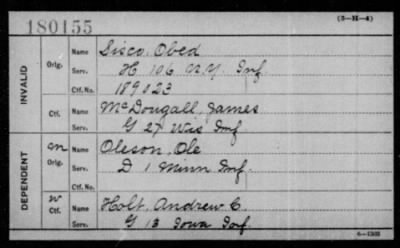 180155
(3-H-4)
INVALID
Orig.
Name Sisco, Obed
Serv. H 106 N.Y. Inf.
Ctf. No. 189023
Ctf.
Name McDougall, James
Serv. G 27 Wis Inf
DEPENDENT
M
Orig.
Name Oleson, Ole
Serv. D 1 Minn Inf.
Ctf. No.
W
Ctf.
Name Holt, Andrew C.
Serv. G 13 Iowa Inf